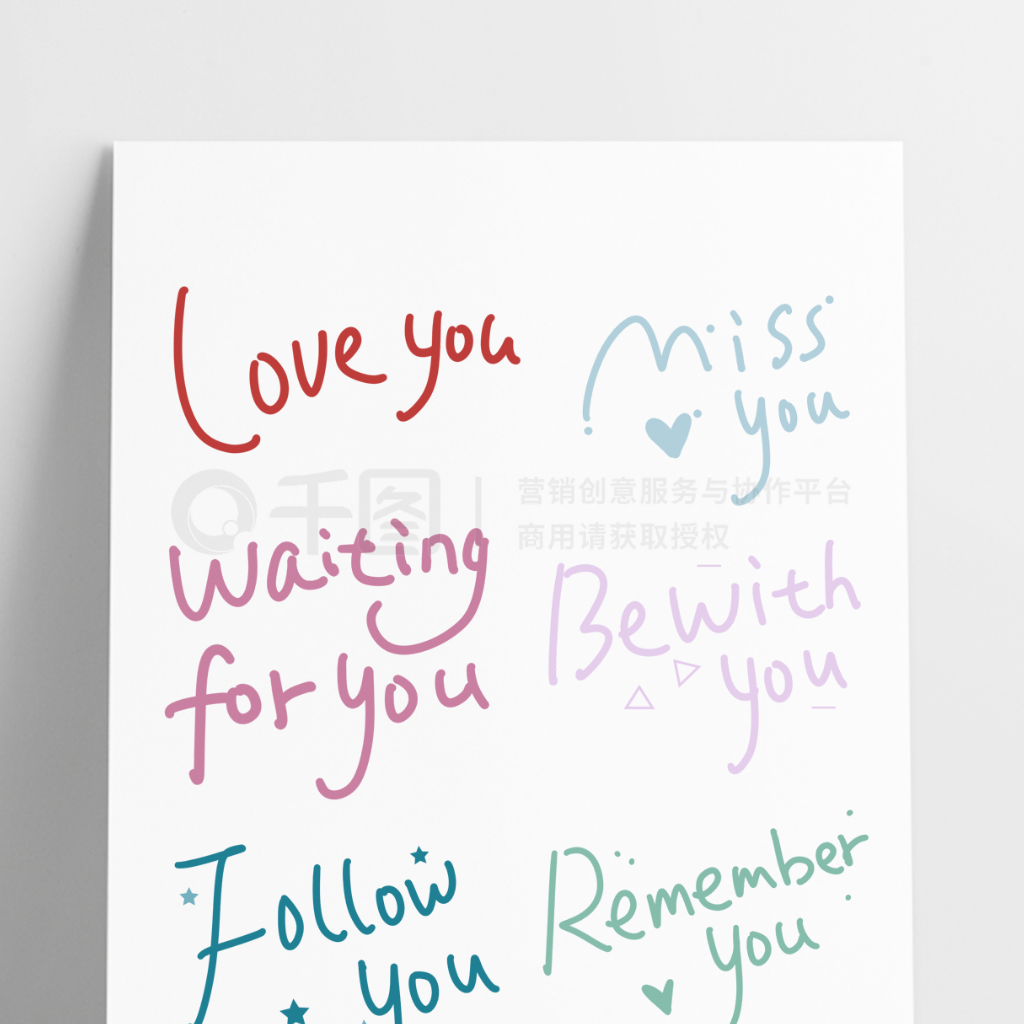 Love you
Miss
you
千图
营销创意服务与协作平台
商用请获取授权
Waiting
for you
Be with
you
Follow
you
Remember
you